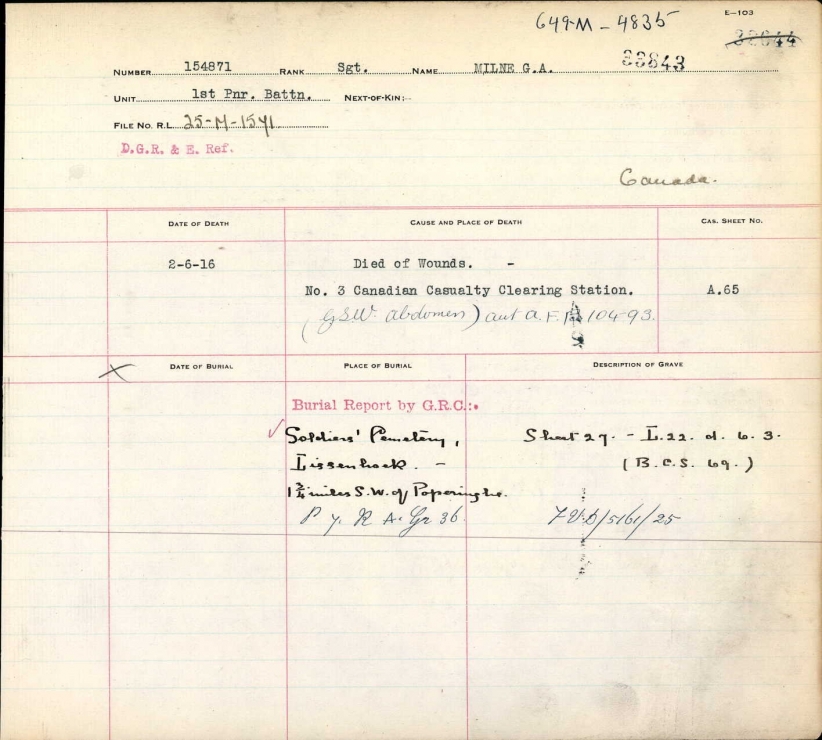 649-M-4835
E-103
32844
NUMBER 154871 RANK Sgt. NAME MILNE G.A. 33843
UNIT 1st Pnr. Battn. NEXT-OF-KIN:-
FILE NO. R.L. 25-M-1571
D.G.R. & E. Ref.
Canada.
DATE OF DEATH CAUSE AND PLACE OF DEATH CAS. SHEET NO.
2-6-16 Died of Wounds. -
No. 3 Canadian Casualty Clearing Station. A.65
(GSW. abdomen) aut A.F. 104-93.
X DATE OF BURIAL PLACE OF BURIAL DESCRIPTION OF GRAVE
Burial Report by G.R.C.:.
Soldiers' Cemetery, Sheet 27. - L.22. d. 6. 3.
Lissenhoek. - (B.C.S. 69.)
1 3/4 miles S.W. of Poperinghe.
P 7. R A. Gr 36. /5161/25